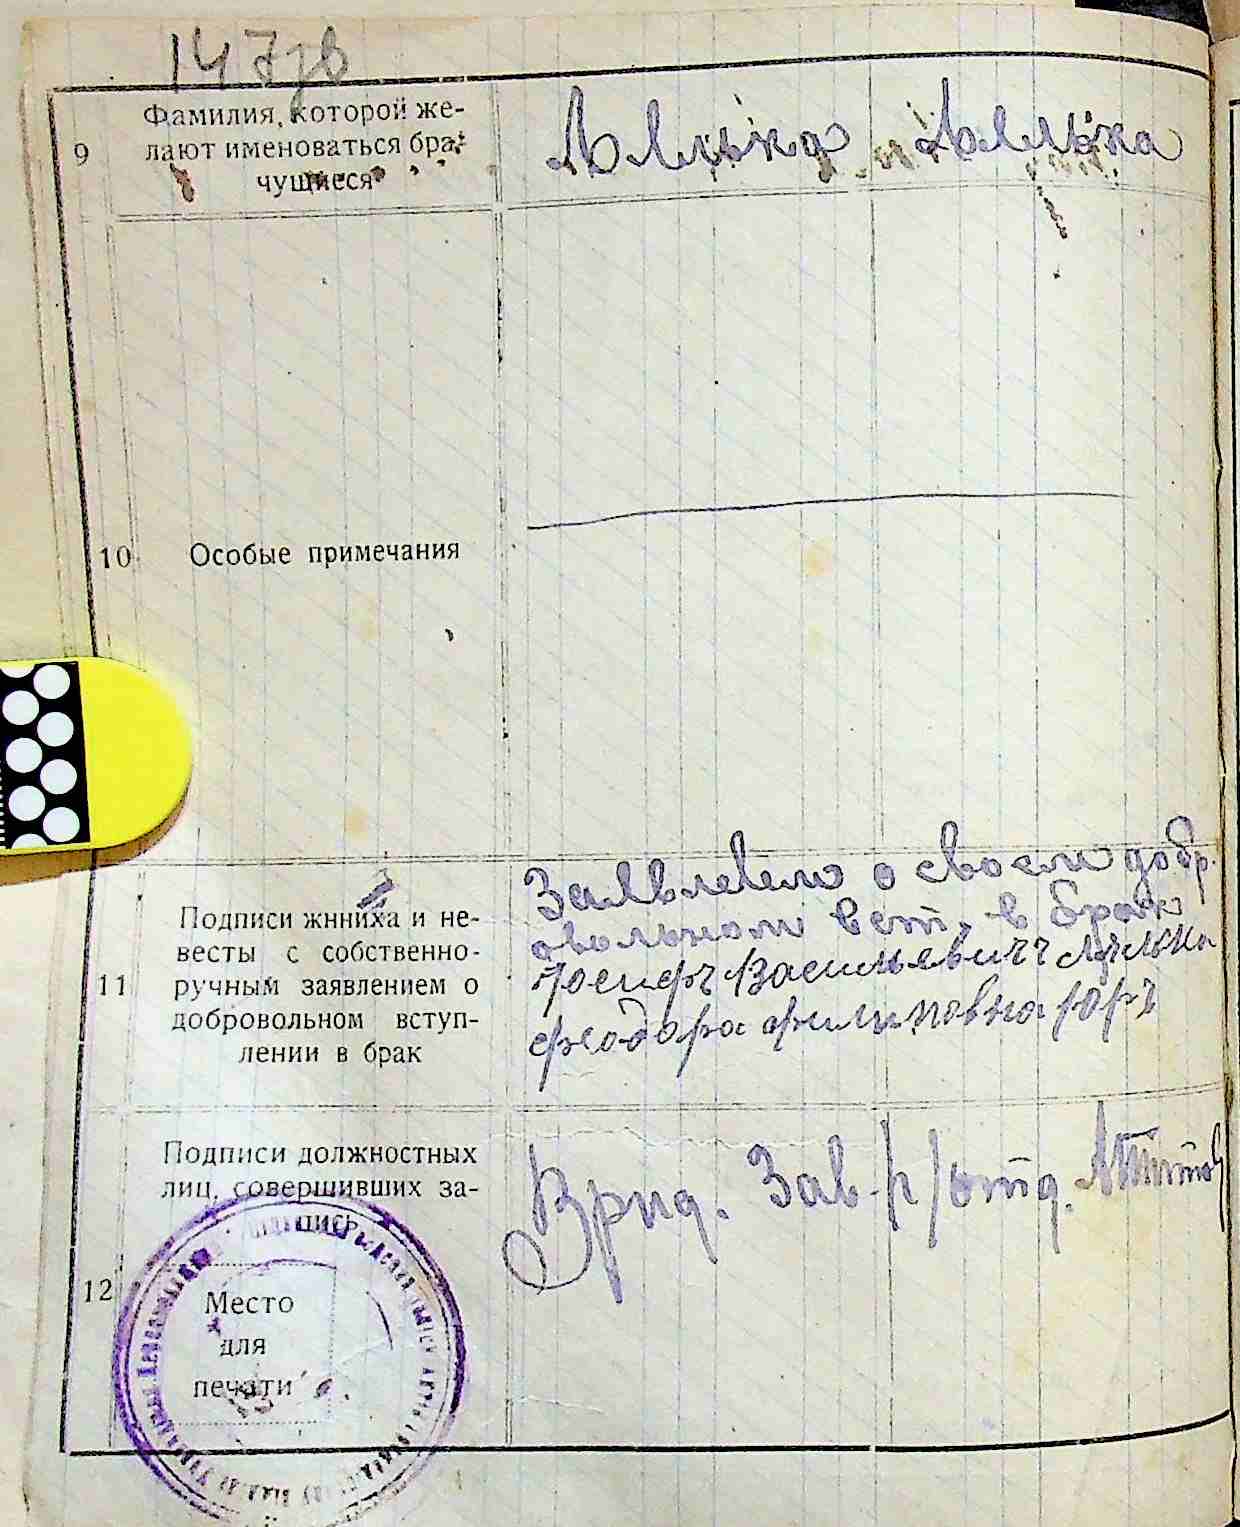 147
9
Фамилия, которой же-
лают именоваться бра-
чущиеся
10
Особые примечания
11
Подписи жнниха и не-
весты с собственно-
ручным заявлением о
добровольном вступ-
лении в брак
Заявляем о своем добр
овольном вст. в брак
Иосифъ Васильевичъ
Феодора Филиповна Юръ
12
Подписи должностных
лиц, совершивших за-
пись
Врид. Зав. р/отд.
Место
для
печати